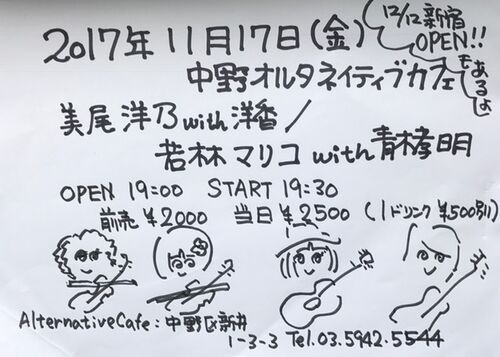 2017年11月17日(金)
12/12新宿
OPEN!!
もあるよ
中野オルタネイティブカフェ
美尾洋乃with洋香/
若林マリコwith青木孝明
OPEN 19:00 START 19:30
前売¥2000 当日¥2500(1ドリンク¥500別)
AlternativeCafe:中野区新井
1-3-3 Tel.03.5942.5544